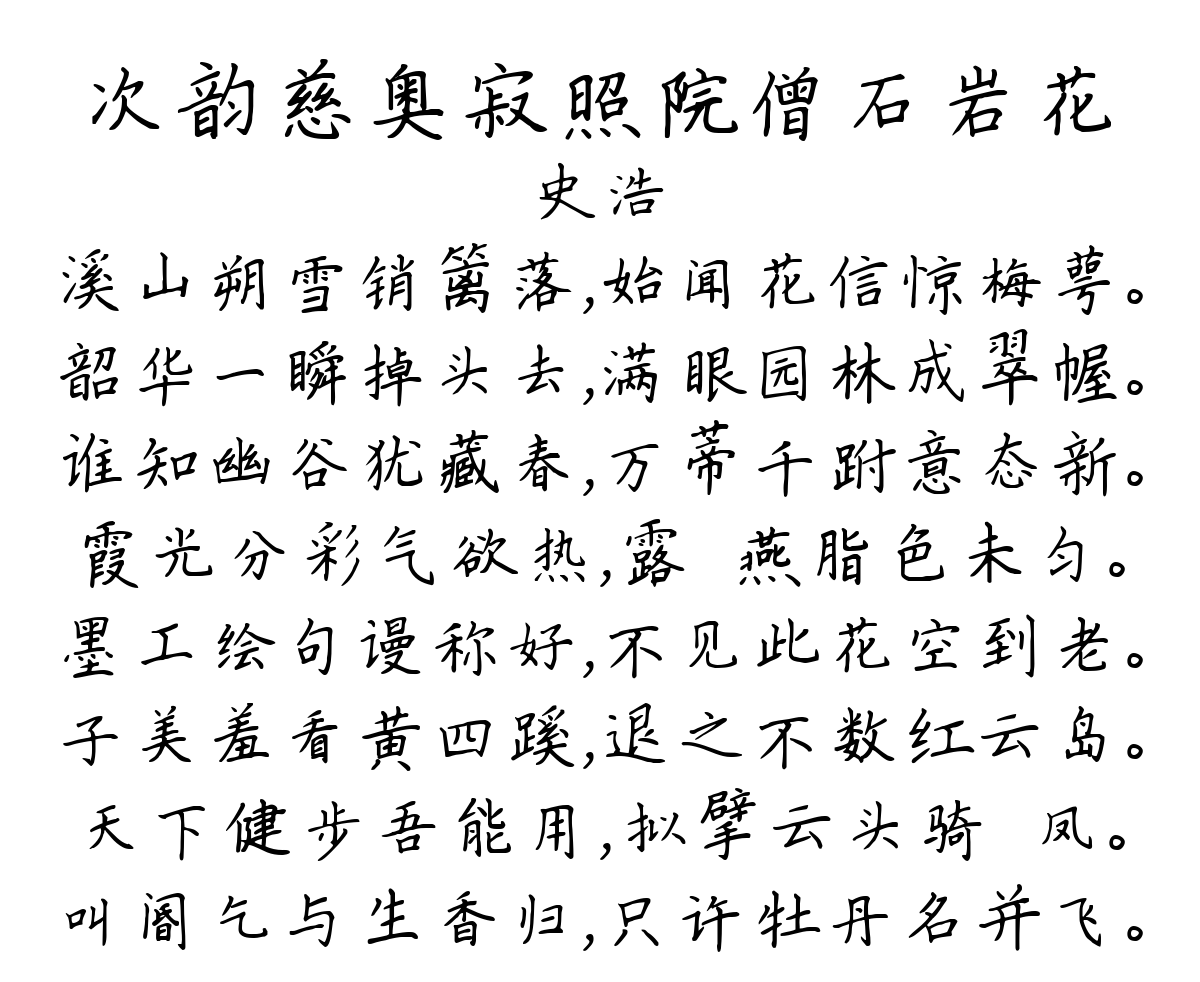 次韵慈奥寂照院僧石岩花
史浩
溪山朔雪销篱落,始闻花信惊梅萼。
韶华一瞬掉头去,满眼园林成翠幄。
谁知幽谷犹藏春,万蒂千跗意态新。
霞光分彩气欲热,露 燕脂色未匀。
墨工绘句谩称好,不见此花空到老。
子美羞看黄四蹊,退之不数红云岛。
天下健步吾能用,拟擘云头骑 凤。
叫阍乞与生香归,只许牡丹名并飞。